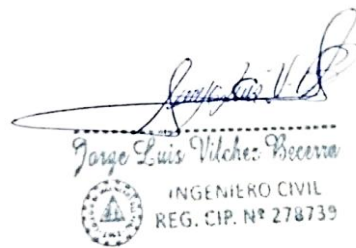 Jorge Luis V.
Jorge Luis Vilchez Becerra
INGENIERO CIVIL
REG. CIP. Nº 278739